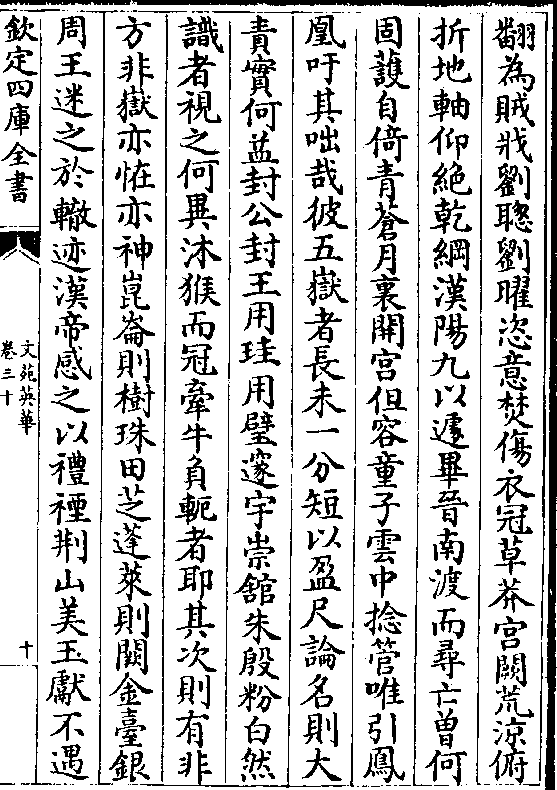 翻為賊戕劉聰劉曜恣意焚傷衣冠草莽宮闕荒涼俯
折地軸仰絶乾綱漢陽九以遽畢晉南渡而尋亡曾何
固護自倚青蒼月裏開宮但容童子雲中捻管唯引鳳
凰吁其咄哉彼五嶽者長未一分短以盈尺論名則大
責實何益封公封王用珪用璧邃宇崇舘朱殷粉白然
識者視之何異沐猴而冠牽牛負軛者耶其次則有非
方非嶽亦恠亦神崑崙則樹珠田芝蓬萊則闕金臺銀
周王迷之於轍迹漢帝感之以禮禋荆山美玉獻不遇
欽定四庫全書
文苑英華
卷三十
十